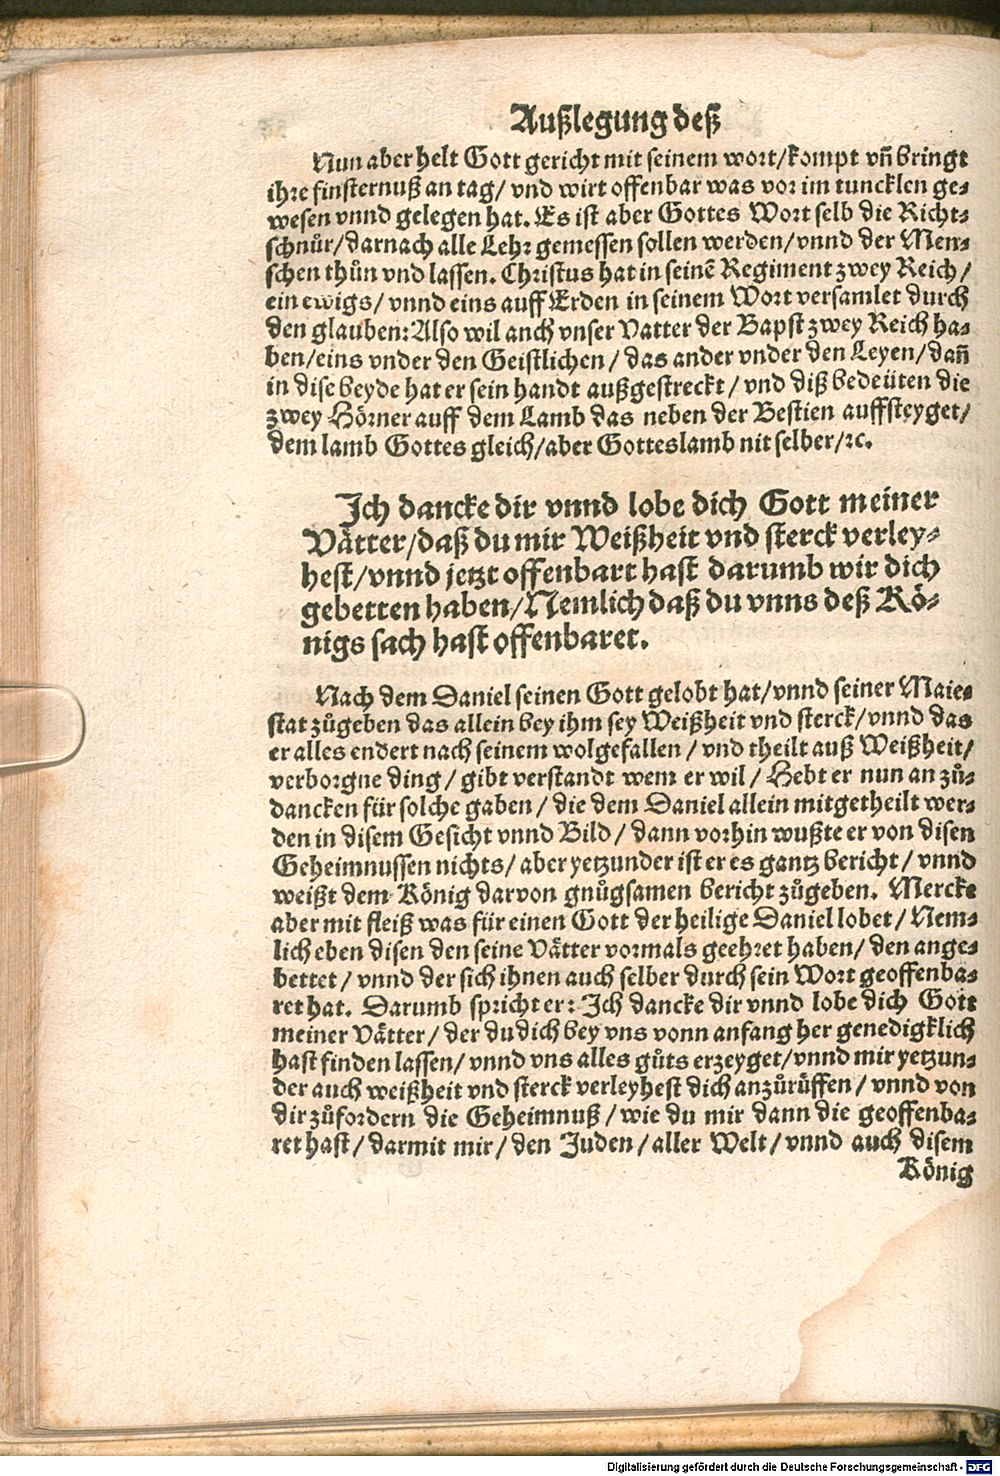 Außlegung deß
Nun aber helt Gott gericht mit seinem wort/kompt vñ bringt
ihre finsternuß an tag/ vnd wirt offenbar was vor im tuncklen ge-
wesen vnnd gelegen hat. Es ist aber Gottes Wort selb die Richt-
schnůr/darnach alle Lehr gemessen sollen werden/vnnd der Men-
schen thůn vnd lassen. Christus hat in seinẽ Regiment zwey Reich/
ein ewigs/ vnnd eins auff Erden in seinem Wort versamlet durch
den glauben: Also wil anch vnser Vatter der Bapst zwey Reich ha-
ben/eins vnder den Geistlichen/ das ander vnder den Leyen/dañ
in dise beyde hat er sein handt außgestreckt/ vnd diß bedeüten die
zwey Hörner auff dem Lamb das neben der Bestien auffsteyget/
dem lamb Gottes gleich/aber Gotteslamb nit selber/ꝛc.
Ich dancke dir vnnd lobe dich Gott meiner
Vätter/daß du mir Weißheit vnd sterck verley-
hest/vnnd jetzt offenbart hast darumb wir dich
gebetten haben/Nemlich daß du vnns deß Kö-
nigs sach hast offenbaret.
Nach dem Daniel seinen Gott gelobt hat/vnnd seiner Maie-
stat zůgeben das allein bey ihm sey Weißheit vnd sterck/vnnd das
er alles endert nach seinem wolgefallen/ vnd theilt auß Weißheit/
verborgne ding/ gibt verstandt wem er wil/ Hebt er nun an zů-
dancken für solche gaben/ die dem Daniel allein mitgetheilt wer-
den in disem Gesicht vnnd Bild/ dann vorhin wußte er von disen
Geheimnussen nichts/ aber yetzunder ist er es gantz bericht/ vnnd
weißt dem König darvon gnůgsamen bericht zůgeben. Mercke
aber mit fleiß was für einen Gott der heilige Daniel lobet/ Nem-
lich eben disen den seine Vätter vormals geehret haben/ den ange-
bettet/ vnnd der sich ihnen auch selber durch sein Wort geoffenba-
ret hat. Darumb spricht er: Ich dancke dir vnnd lobe dich Gott
meiner Vätter/ der du dich bey vns vonn anfang her genedigklich
hast finden lassen/ vnnd vns alles gůts erzeyget/vnnd mir yetzun-
der auch weißheit vnd sterck verleyhest dich anzůrüffen/ vnnd von
dir zůfordern die Geheimnuß/ wie du mir dann die geoffenba-
ret hast/ darmit mir/ den Juden/ aller Welt/ vnnd auch disem
König
Digitalisierung gefördert durch die Deutsche Forschungsgemeinschaft - DFG